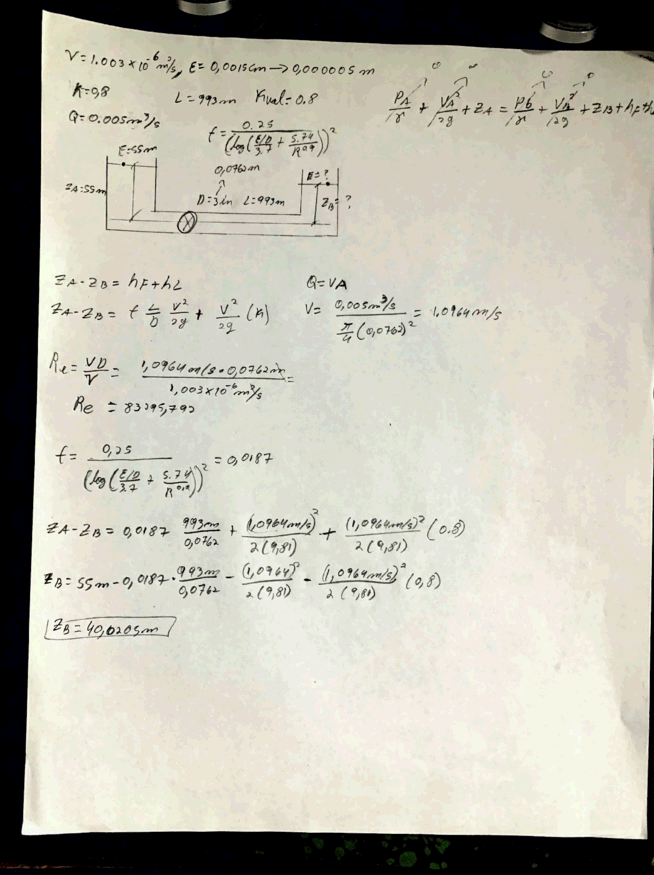 V=1.003×10⁻⁶ m³/s, E=0,0015cm→0,000005m
K=0,8 L=993m Kval=0.8
Q=0.005m³/s
f = 0.25 / (log(E/D / 3.7 + 5.74 / R^0,9))²
0 0 0 0
PA/γ + VA²/2g + ZA = Pb/γ + VB²/2g + ZB + hF + h
E=55m
0,0762m
E=?
ZA=55m
D=3in L=993m
ZB=?
ZA-ZB = hF+hL Q=VA
ZA-ZB = f L/D V²/2g + V²/2g (K)
V= 0,005m³/s / π/4 (0,0762)² = 1,0964m/s
Re= VD/V = 1,0964m/s·0,0762m / 1,003×10⁻⁶m²/s =
Re = 83295,792
f= 0,25 / (log(E/D / 3.7 + 5.74 / R^0,9))² = 0,0187
ZA-ZB = 0,0187 993m/0,0762 + (1,0964m/s)²/2(9,81) + (1,0964m/s)²/2(9,81) (0.8)
ZB= 55m-0,0187·993m/0,0762 - (1,0964)²/2(9,81) - (1,0964m/s)²/2(9,81) (0,8)
ZB=40,0205m